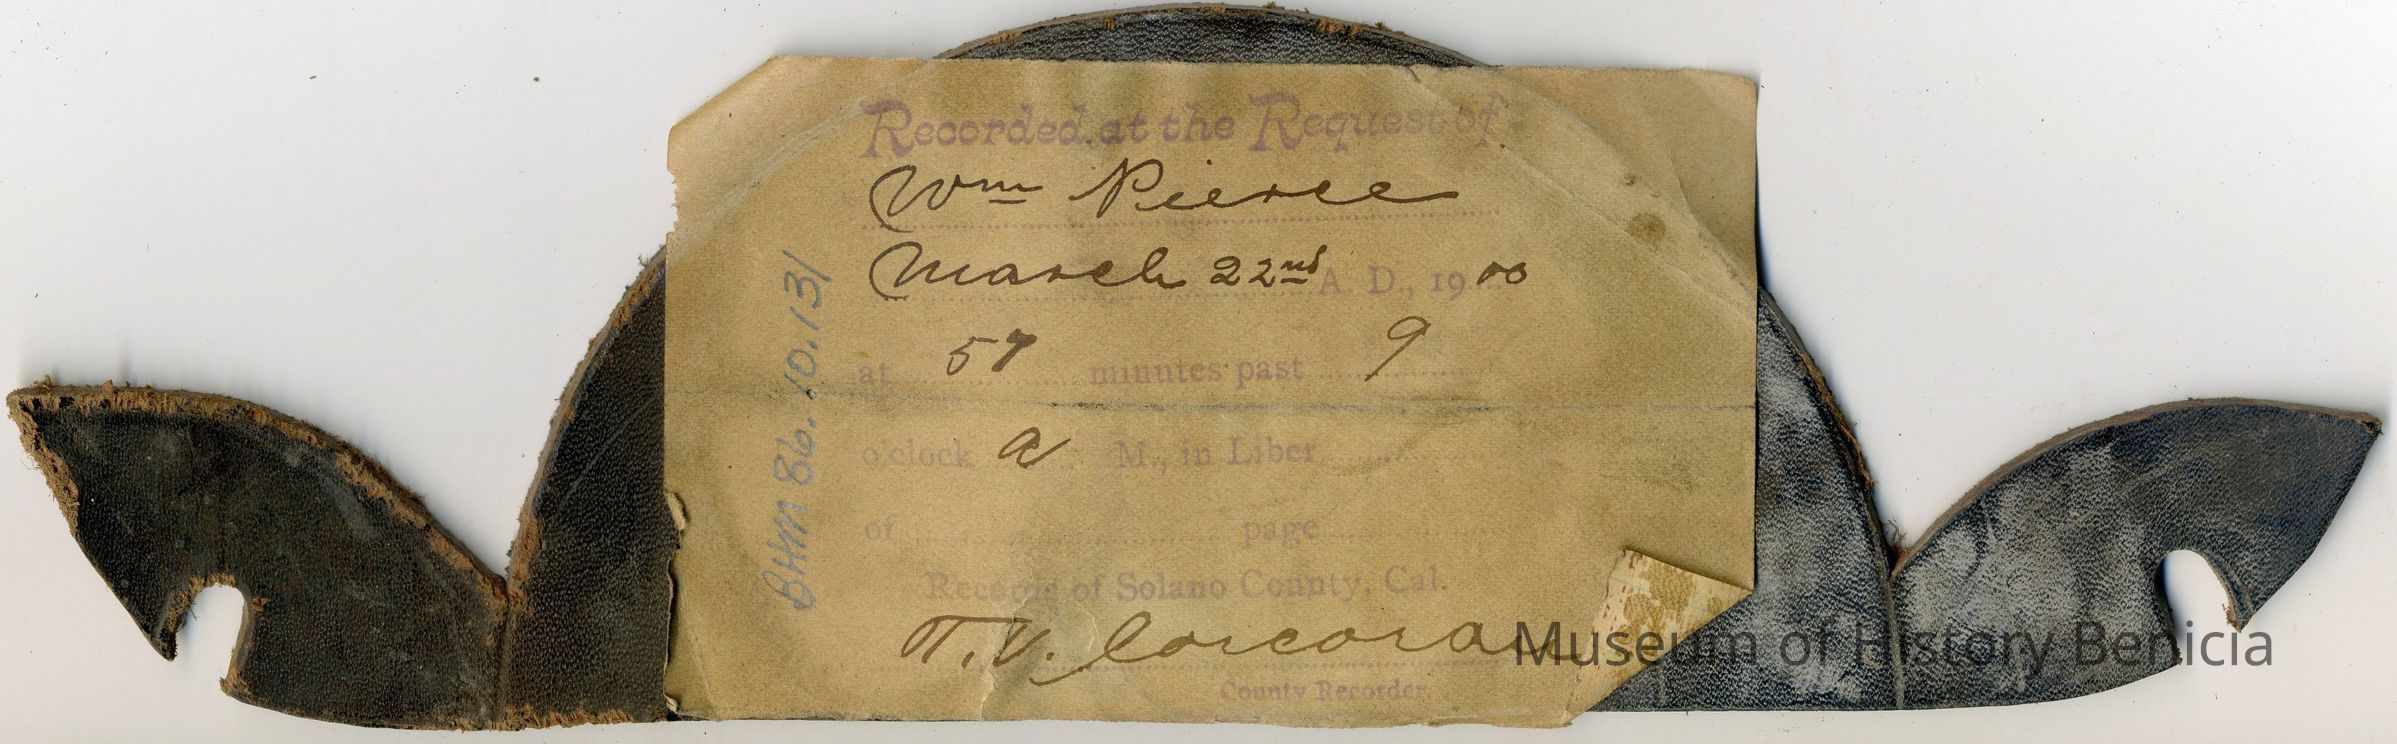 Recorded at the Request of
Wm Pierce
March 22nd A. D., 1900
at 57 minutes past 9
o'clock a M., in Liber
of page
Records of Solano County, Cal.
T. V. Corcoran
County Recorder.
BHM 86.10.131
Museum of History Benicia